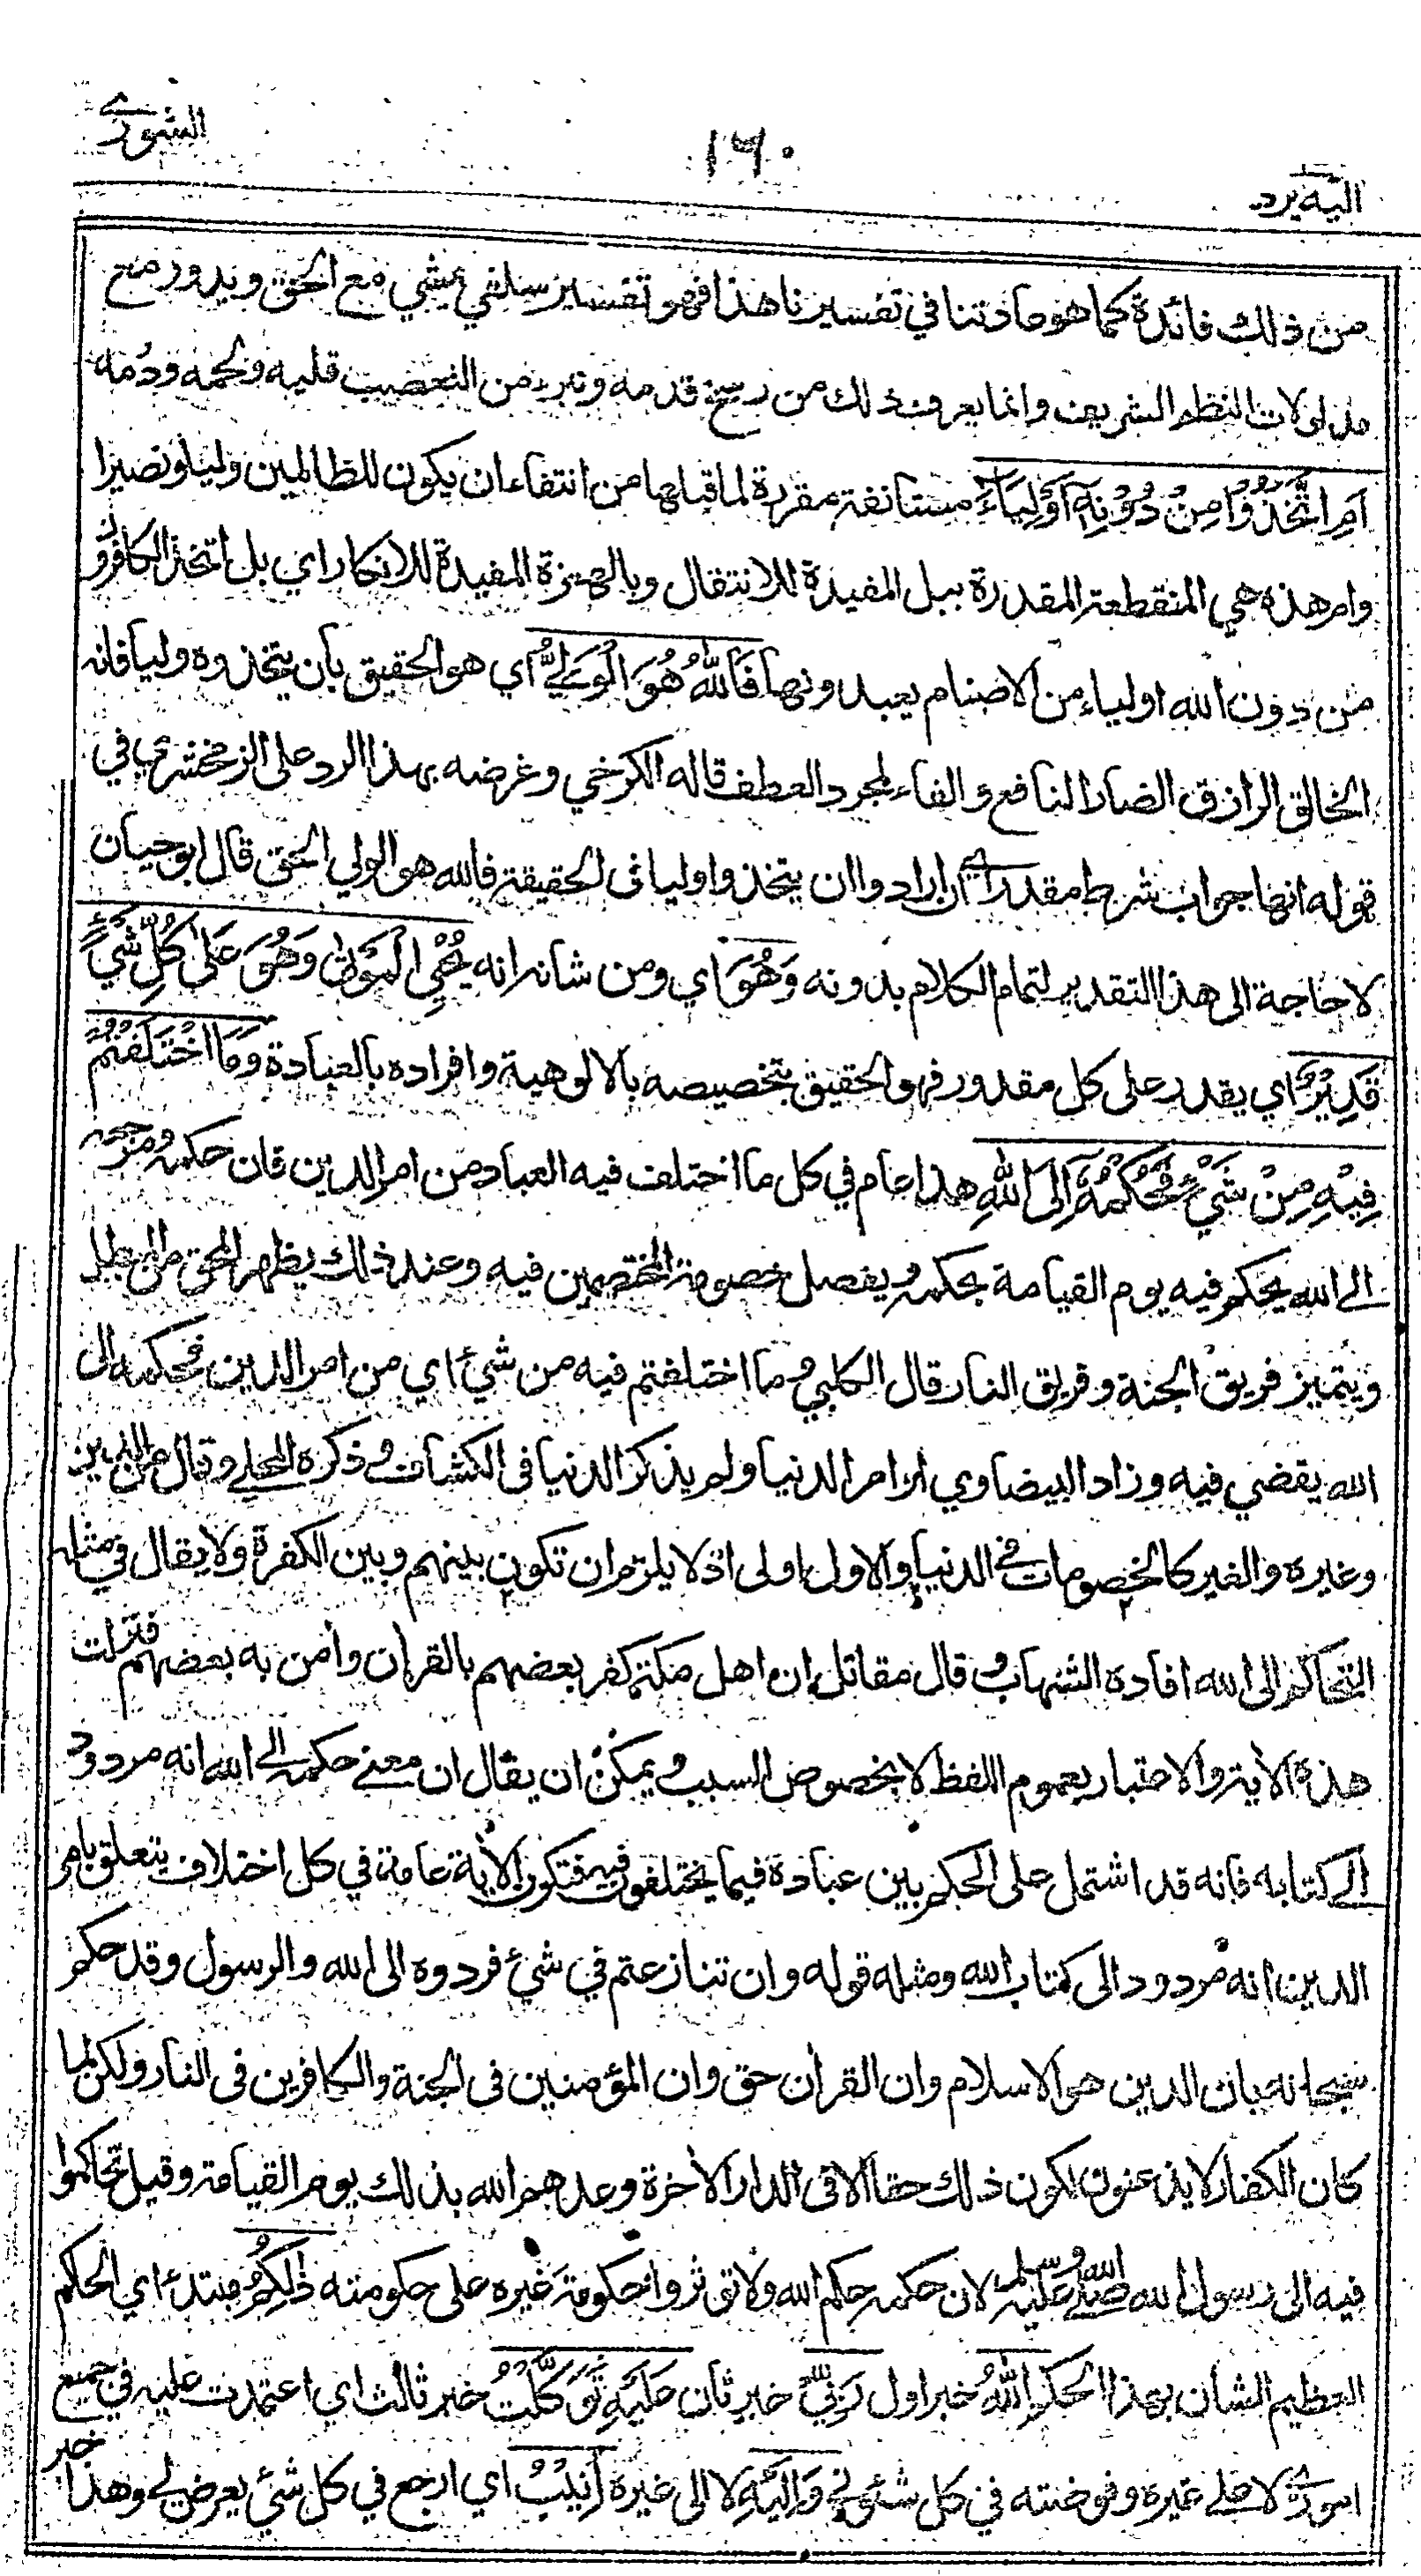 الشورى
١٦٠
اليه يرد
من ذلك فائدة كما هو عادتنا في تفسيرنا هذا فهو تفسير سلفي يمشي مع الحق ويدور مع
مدلولات النظم الشريف وانما يعرف ذلك من رسخ قدمه وتبرء من التعصب قلبه ولحمه ودمه
اَمِ اتَّخَذُوْا مِنْ دُوْنِهٖٓ اَوْلِيَآءَ مستانفة مقررة لما قبلها من انتفاء ان يكون للظالمين وليا ونصيرا
وام هذه هي المنقطعة المقدرة ببل المفيدة للانتقال وبالهمزة المفيدة للانكار اي بل اتخذ الكافرون
من دون الله اولياء من الاصنام يعبدونها فَاللّٰهُ هُوَ الْوَلِيُّ اي هو الحقيق بان يتخذوه وليا فانه
الخالق الرازق الضار النافع والفاء لمجرد العطف قاله الكرخي وغرضه بهذا الرد على الزمخشري في
قوله انها جواب شرط مقدر اي ان ارادوا ان يتخذوا وليا في الحقيقة فالله هو الولي الحق قال ابو حيان
لا حاجة الى هذا التقدير لتمام الكلام بدونه وَهُوَ اي ومن شانه انه يُحْيِ الْمَوْتٰى وَهُوَ عَلٰى كُلِّ شَيْءٍ
قَدِيْرٌ اي يقدر على كل مقدور فهو الحقيق بتخصيصه بالالوهية وافراده بالعبادة وَمَا اخْتَلَفْتُمْ
فِيْهِ مِنْ شَيْءٍ فَحُكْمُهٗٓ اِلَى اللّٰهِ هذا عام في كل ما اختلف فيه العباد من امر الدين فان حكمه ومرجعه
الى الله يحكم فيه يوم القيامة بحكمه ويفصل خصومة المختصمين فيه وعند ذلك يظهر المحق من المبطل
ويتميز فريق الجنة وفريق النار قال الكلبي وما اختلفتم فيه من شيء اي من امر الدين فحكمه الى
الله يقضي فيه وزاد البيضاوي او امر الدنيا ولم يذكر الدنيا في الكشاف وذكره المحلي وقال من الدين
وغيره والغير كالخصومات في الدنيا والاول اولى اذ لا يلزم ان تكون بينهم وبين الكفرة ولا يقال في مثله
التحاكم الى الله افاده الشهاب وقال مقاتل ان اهل مكة كفر بعضهم بالقران وامن به بعضهم فنزلت
هذه الأية والاعتبار بعموم اللفظ لا بخصوص السبب ويمكن ان يقال ان معنى حكمه الى الله انه مردود
الى كتابه فانه قد اشتمل على الحكم بين عباده فيما يختلفون فيه فتكون الأية عامة في كل اختلاف يتعلق بامر
الدين انه مردود الى كتاب الله ومثله قوله وان تنازعتم في شيء فردوه الى الله والرسول وقد حكم
سبحانه بان الدين هو الاسلام وان القرأن حق وان المؤمنين في الجنة والكافرين في النار ولكن لما
كان الكفار لا يذعنون لكون ذلك حقا الا في الدار الأخرة وعدهم الله بذلك يوم القيامة وقيل تحاكموا
فيه الى رسول الله صلى الله عليه وسلم لان حكمه حكم الله ولا تؤثروا حكومة غيره على حكومته ذٰلِكُمُ مبتدء اي الحاكم
العظيم الشان بهذا الحكم اللّٰهُ خبر اول رَبِّيْ خبر ثان عَلَيْهِ تَوَكَّلْتُ خبر ثالث اي اعتمدت عليه في جميع
اموري لا على غيره وفوضته في كل شئوني وَاِلَيْهِ لا الى غيره اُنِيْبُ اي ارجع في كل شيء يعرض لي وهذا خبر